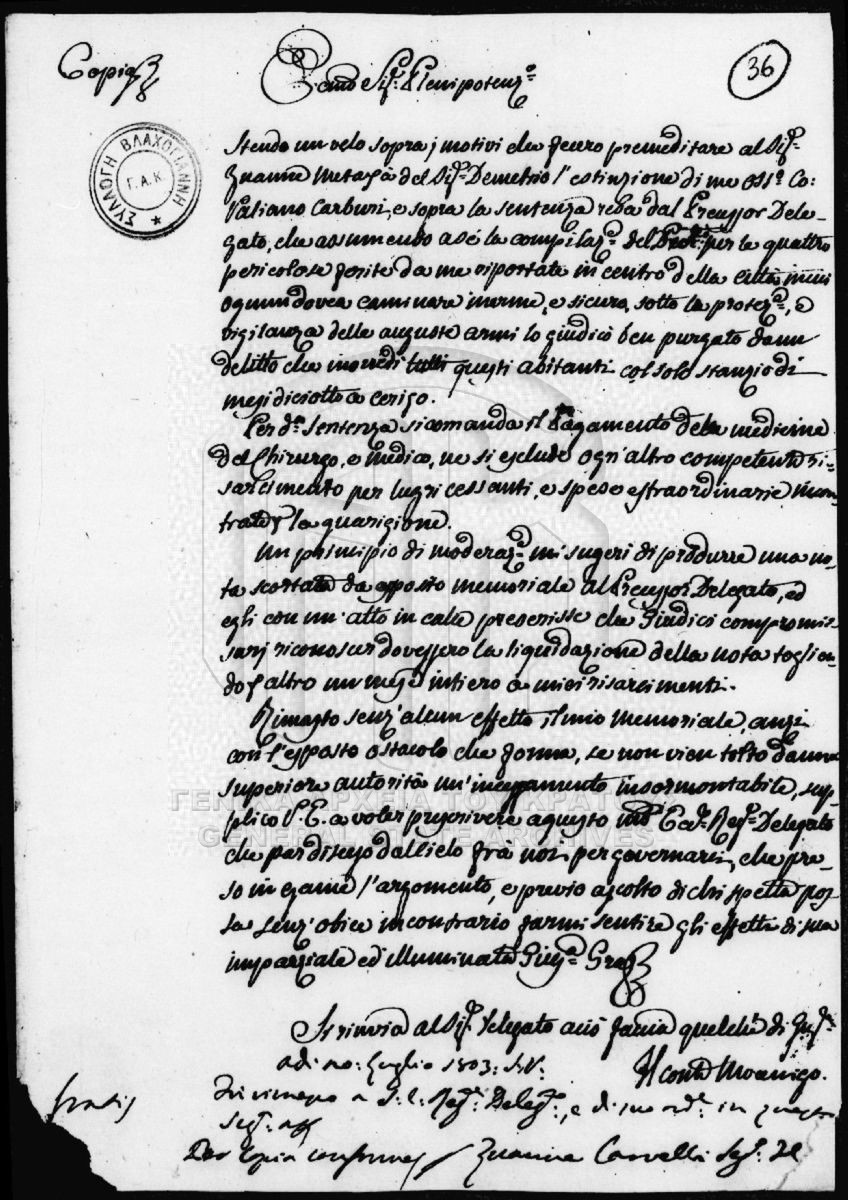 Copia
36
Ecc.mo Sig.r Plenipotenz.o
ΣΥΛΛΟΓΗ ΒΛΑΧΟΓΙΑΝΝΗ
Γ.Α.Κ.
Stendo un velo sopra j motivi che fecero premeditare al Sig.r
Zuanne Metaxà del Sig.r Demetrio l'estinzione di me Oss.o Co:
Valiano Carburi, e sopra la sentenza resa dal Precessor Dele-
gato, che assumendo a sè la compilaz.e del per le quattro
pericolose ferite da me riportate in centro della città in cui
ognun dovea caminare inerme, e sicuro, sotto la protez.e, e
vigilanza delle auguste armi lo giudicò ben purgato da un
delitto che inorridì tutti questi abitanti col solo stanzio di
mesi diciotto a Cerigo.
Per d.a Sentenza si comanda il Pagamento dela medicine
del Chirurgo, e medico, ne si esclude ogn'altro competente ri-
sarcimento per lugri cessanti, e spese estraordinarie incon-
trate p la guarigione.
Un principio di moderaz.e mi sugerì di produrre una no-
ta scortata da apposito memoriale al Precessor Delegato, ed
egli con un'atto in cale prescrisse che Giudici compromis-
sarj riconoscer dovessero la liquidazione della nota toglien-
do p altro un mese intiero a miei risarcimenti.
Rimasto senz'alcun effetto il mio memoriale, anzi
con l'esposto ostacolo che forma, se non vien tolto da una
superiore autorità un'inceppamento insormontabile, sup-
plico V.E. a voler prescrivere a questo Ecc.mo Reg.o Delegato
che par disceso dal Cielo frà noi per governarci, che pre-
so in esame l'argomento, e previo ascolto di chi spetta pos-
sa senz'obice in contrario farmi sentire gli effetti di sua
imparziale ed illuminata Giust.a Graz
ΓΕΝΙΚΑ ΑΡΧΕΙΑ ΤΟΥ ΚΡΑΤΟΥΣ
GENERAL STATE ARCHIVES
Si rinvia al Sig.r Delegato acciò faccia quel ch'è di Giust.a
adi 20: Luglio 1803: S.V.
Il Conte Mocenigo.
Gratis
a S.E. Reg.o Deleg.o, e di suo ord.e in questa
Seg.a
Per Copia conforme
Zuanne Seg.o